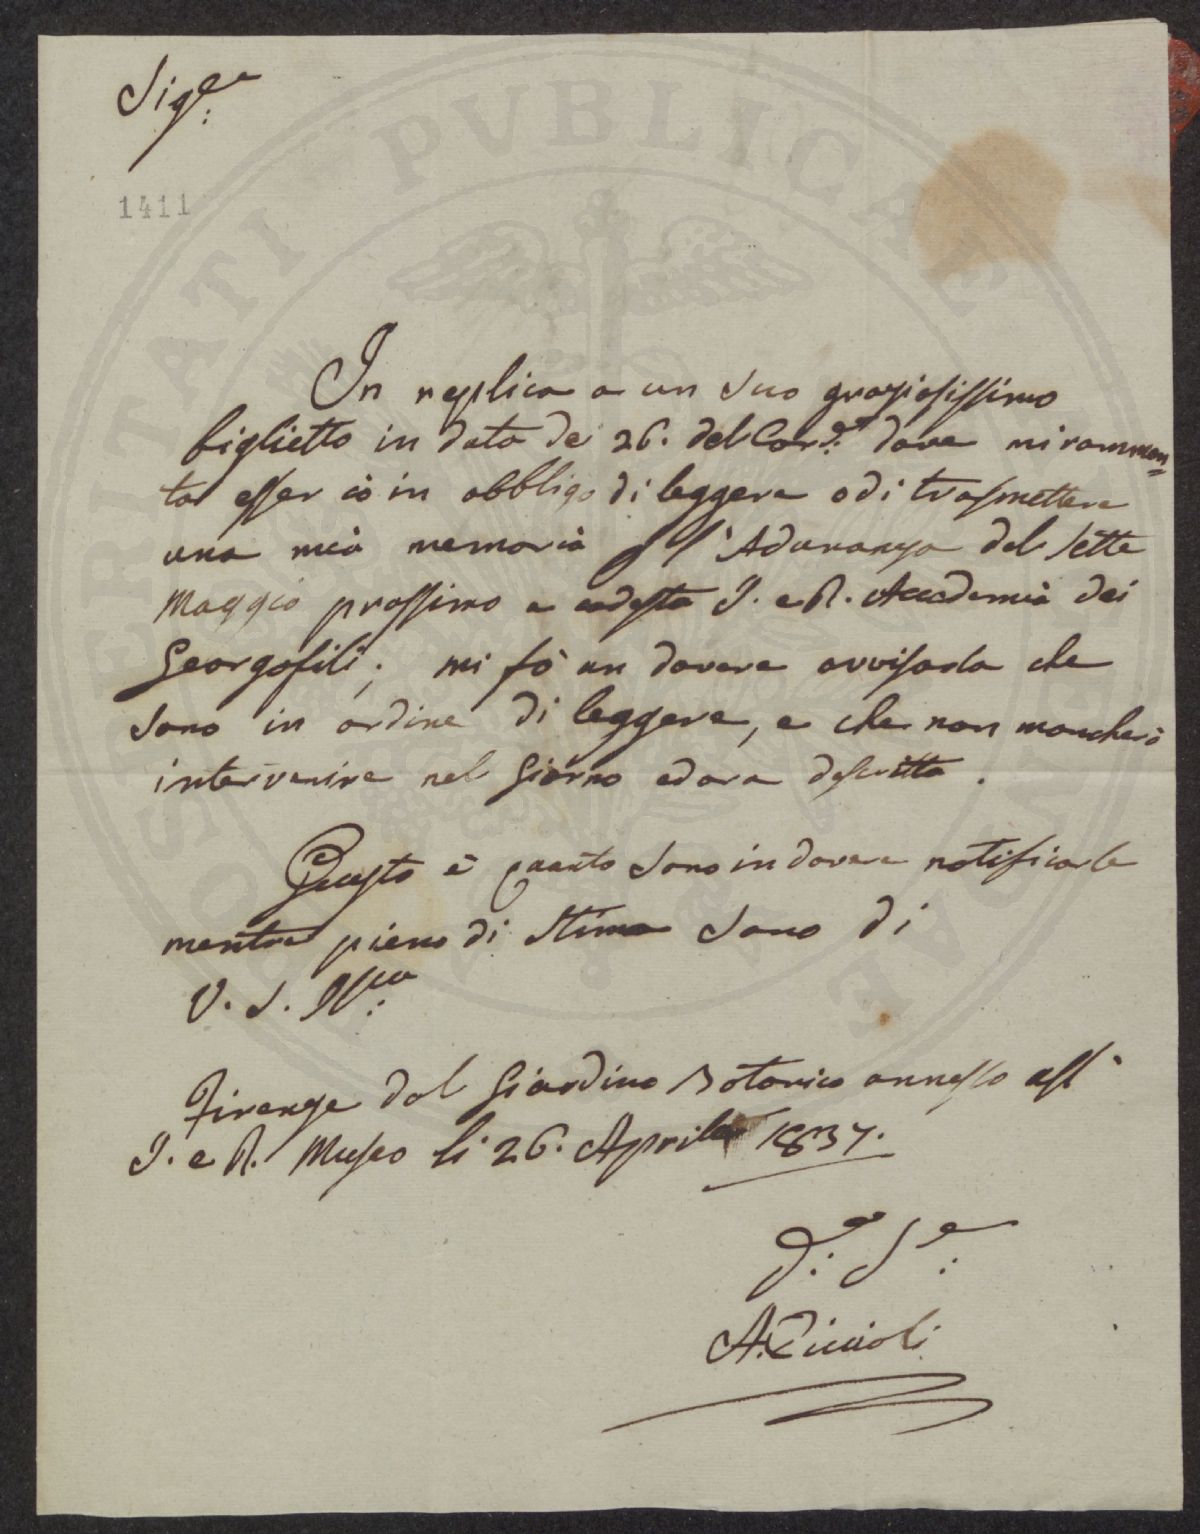 Sig.re
1411
In replica a un Suo graziosissimo
biglietto in data de' 26. del Corr.e dove mi rammen=
ta esser io in obbligo di leggere o di trasmettere
una mia memoria p l'Adunanza del Sette
Maggio prossimo a codesta I. e R. Accademia dei
Georgofili; mi fò un dovere avvisarla che
sono in ordine di leggere, e che non mancherò
intervenire nel Giorno ed ora descritta.
Questo è quanto sono in dovere notificarle
mentre pieno di Stima Sono di
V. S. Ill.ma
Firenze dal Giardino Botanico annesso all'
I. e R. Museo li 26. Aprile 1837.
D.o S.e
A. Piccioli
SOCIETATI PVBLICAE